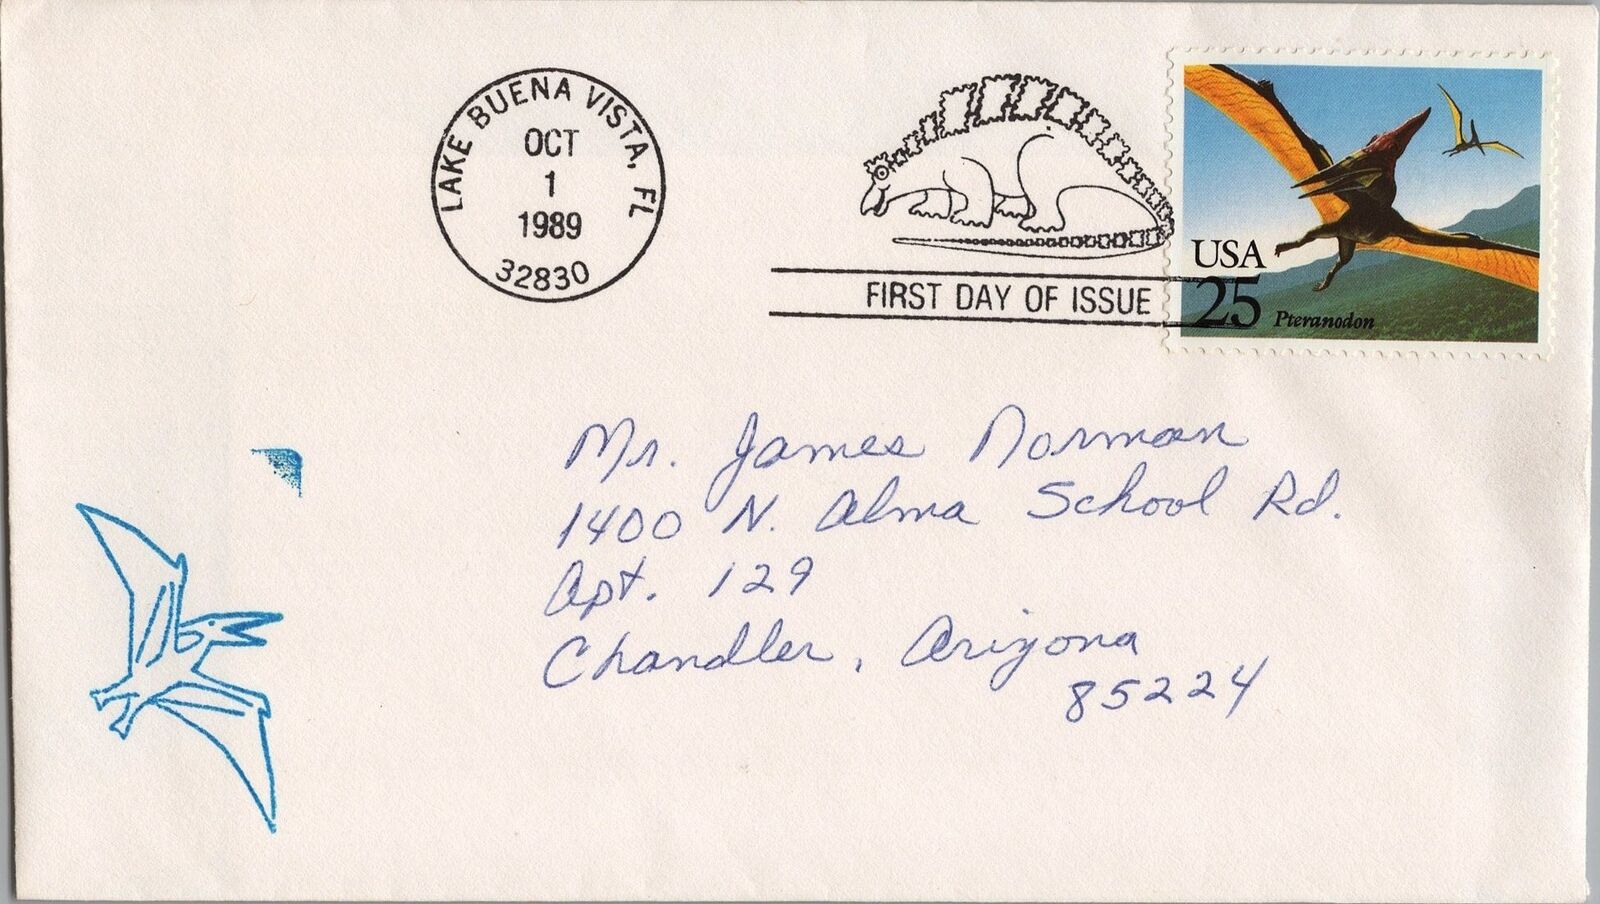 LAKE BUENA VISTA, FL
OCT
1
1989
32830
FIRST DAY OF ISSUE
USA
25
Pteranodon
Mr. James Norman
1400 N. Alma School Rd.
Apt. 129
Chandler, Arizona
85224